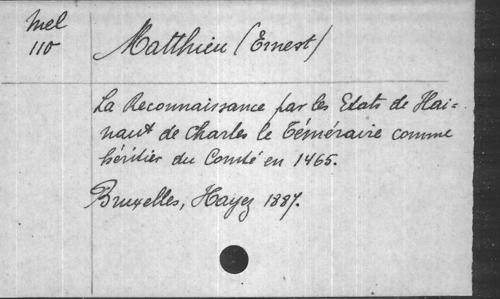 Mel
110
Matthieu (Ernest)
La Reconnaissance par les Etats de Hai-
naut de Charles le Téméraire comme
héritier du Comté en 1465.
Bruxelles, Hayez 1887.